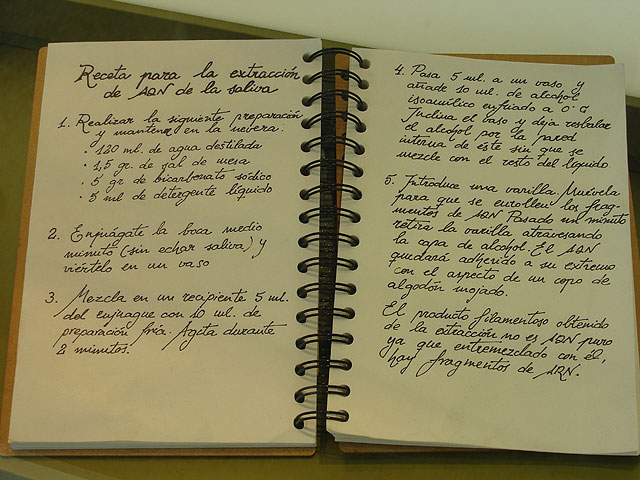 Receta para la extracción
de ADN de la saliva
1. Realizar la siguiente preparación
y mantener en la nevera:
• 120 ml. de agua destilada
• 1,5 gr. de sal de mesa
• 5 gr de bicarbonato sódico
• 5 ml de detergente líquido
2. Enjuágate la boca medio
minuto (sin echar saliva) y
viértelo en un vaso
3. Mezcla en un recipiente 5 ml.
del enjuague con 10 ml. de
preparación fría. Agita durante
2 minutos.
4. Pasa 5 ml. a un vaso y
añade 10 ml. de alcohol
isoamílico enfriado a 0º C
Inclina el vaso y deja resbalar
el alcohol por la pared
interna de este sin que se
mezcle con el resto del líquido
5. Introduce una varilla. Muévela
para que se enrollen los frag-
mentos de ADN Pasado un minuto
retira la varilla atravesando
la capa de alcohol. El ADN
quedará adherido a su extremo
con el aspecto de un copo de
algodón mojado.
El producto filamentoso obtenido
de la extracción no es ADN puro
ya que entremezclado con él,
hay fragmentos de ARN.